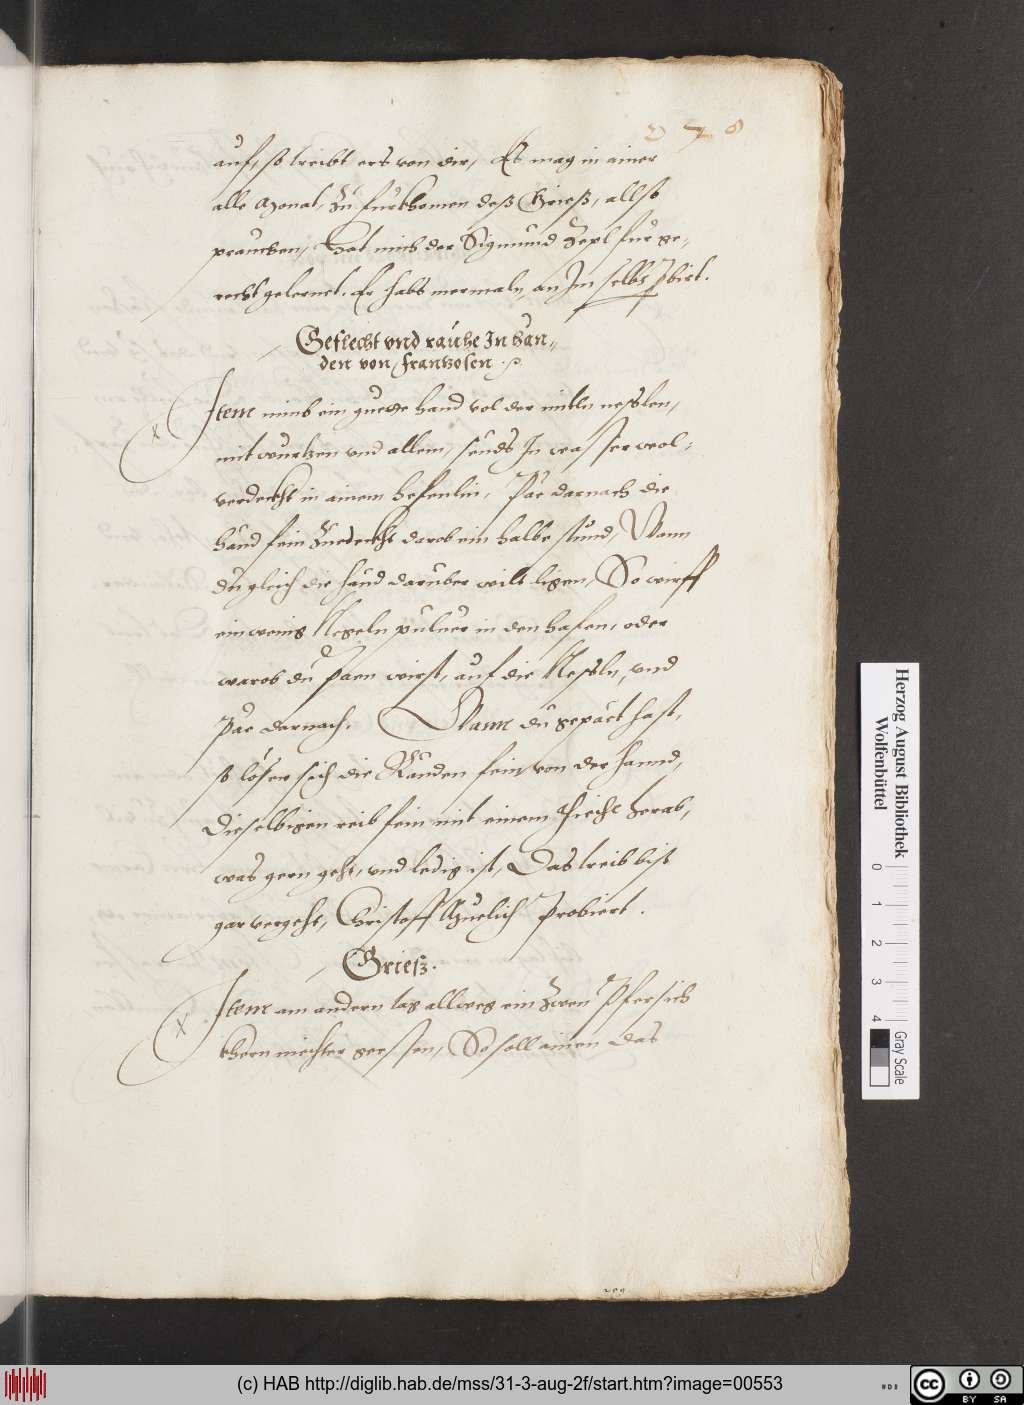 276
auf, so treibt ers von dir, Es mag in ainer
alle Monat, zu furkhomen deß Grieß, allso
prauchen, hat mich der Sigmund Zepl fur ge-
recht gelernet. Er habs mermaln an Im selbs
Geflecht vnd rauhe In han-
den von Franzosen.
Item nimb ein guete hand vol der nesslen,
mit wurtzen vnd allem, seuds In wasser wol
verdeckht in ainem hefenlin, Pae darnach die
händ fein zuedeckht darob ein halbe stund, Wann
du gleich die händ daruber wilt legen, So wirff
ein wenig Negeln puluer in den hafen, oder
warob du paen wirst, auf die Nessln, vnd
Pae darnach. Wann du gepaet hast,
so lösen sich die Rauden fein von der hannd,
Dieselbigen reib fein mit einem herab,
was gern geht, vnd ledig ist, Das treib bist
gar vergeht, Christoff Probiert.
Grieß.
Item am andern tag allweg ein zwen Pfersich
khern niechter gessen, So soll ainen das
Herzog August Bibliothek
Wolfenbüttel
0 1 2 3 4
Gray Scale
(c) HAB http://diglib.hab.de/mss/31-3-aug-2f/start.htm?image=00553
cc BY SA